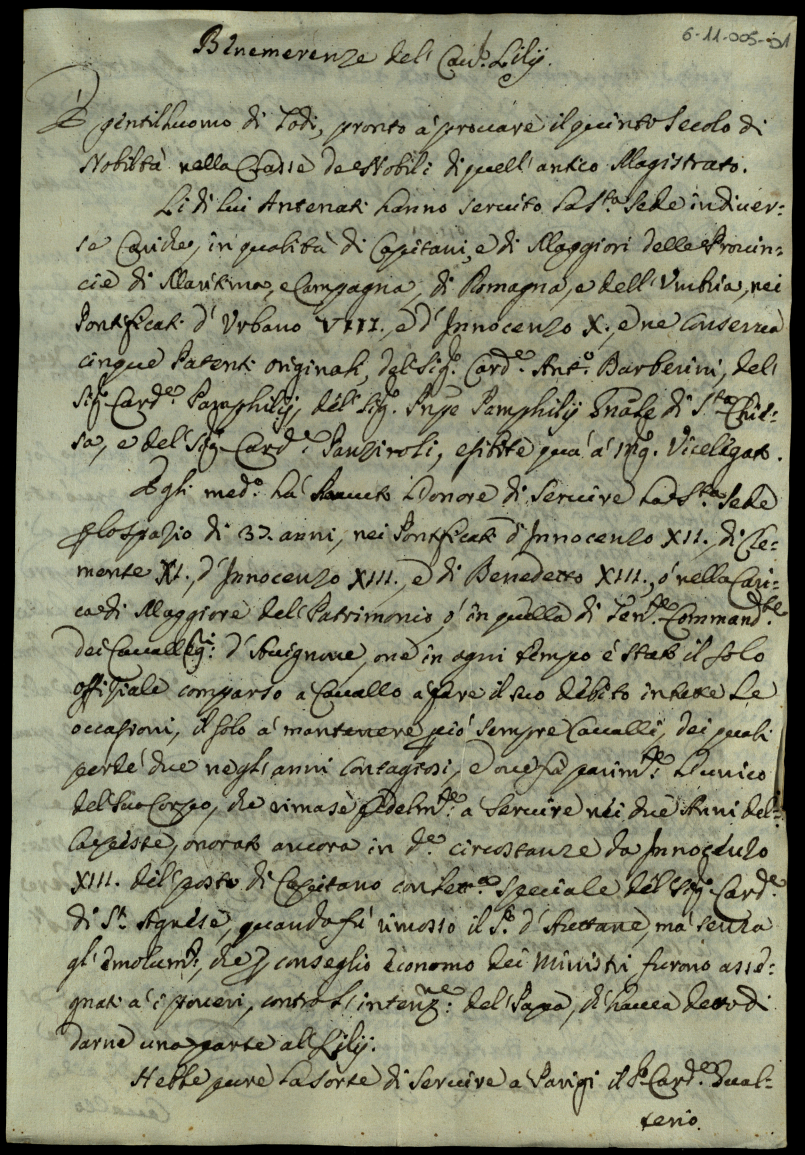 6-11-005-01
Benemerenze del Cav.r Lilij.
È gentilhuomo di Todi, pronto à provare il quinto Secolo di
Nobiltà nella Classe de Nobili di quell'antico Magistrato.
Li di lui Antenati hanno servito la S.ta Sede in diver-
se Cariche, in qualità di Capitani, e di Maggiori delle Provin-
cie di Marittima, e Campagna, di Romagna, e dell'Umbria, nei
Pontificati d'Urbano VIII., e d'Innocenzo X., e ne conserva
cinque Patenti originali, del Sig.r Card.e Ant.o Barberini, del
Sig.r Card.e Pamphilij, del Sig.r Pnpe Pamphilij Gnale di S.ta Chie-
sa, e del Sig.r Card.e Panziroli, esibite quà à Mg.r Vicelegato.
Egli med.o hà havuto l'honore di servire la S.ta Sede
p lo spazio di 37. anni, nei Pontificati d'Innocenzo XII., di Cle-
mente XI., d'Innocenzo XIII., e di Benedetto XIII., ò nella Cari-
ca di Maggiore del Patrimonio, ò in quella di Ten.te Command.te
dei Cavalleg.ri d'Avignone, ove in ogni tempo è stato il solo
offiziale comparso a Cavallo à fare il suo debito in tutte le
occasioni, il solo à mantenere più sempre Cavalli, dei quali
perdè due negl'anni contagiosi, e ove fù parim.te l'unico
del suo Corpo, che rimase fedelm.te a servire nei due Anni del-
la peste, onorato ancora in d.e circostanze da Innocenzo
XIII. del posto di Capitano con lett.a speciale del Sig.r Card.e
di S.t Agnese, quando fù rimosso il S.r d'Auttane, mà senza
gl'emolum.ti, che p conseglio economo dei Ministri furono asse-
gnati à i poveri, contro l'intenz.ne del Papa, ch'haveva detto di
darne una parte al Lilij.
Hebbe pure la sorte di servire a Parigi il S.r Card.e Gual-
terio.